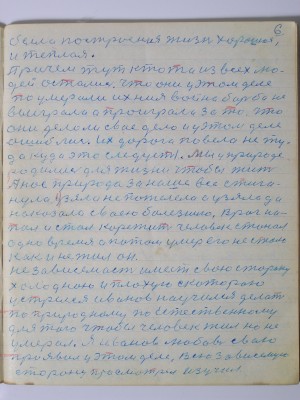 6.
была построиная жизнь хорошая,
и теплая.
Причем тут ктота из всех лю-
дей остался. Что они у этом деле
по умерали их ния война борьба не
выеграла а проеграла за то. что
они делали свае дело и у этом деле
ошиблис. Их дорога повела не ту-
да куда это следует. Мы у природе
родилис для жизни чтобы жит
Яное природа за наше все стига-
нула. Взяла не пожалела а узяла да
наказала сваею болезнию, Враг на-
пал и стал коротит человек стонал
одно время а потом умер его не стало
как и не жил он.
независимаст имеет свою сторону
холодною и плохую с которою
устрелся иванов научился делат
по природному по естественному
для того чтобы человек жил но не
умерал. Я иванов любовь сваю
проявил у этом деле, всю зависимую
сторону просмотрел изучил